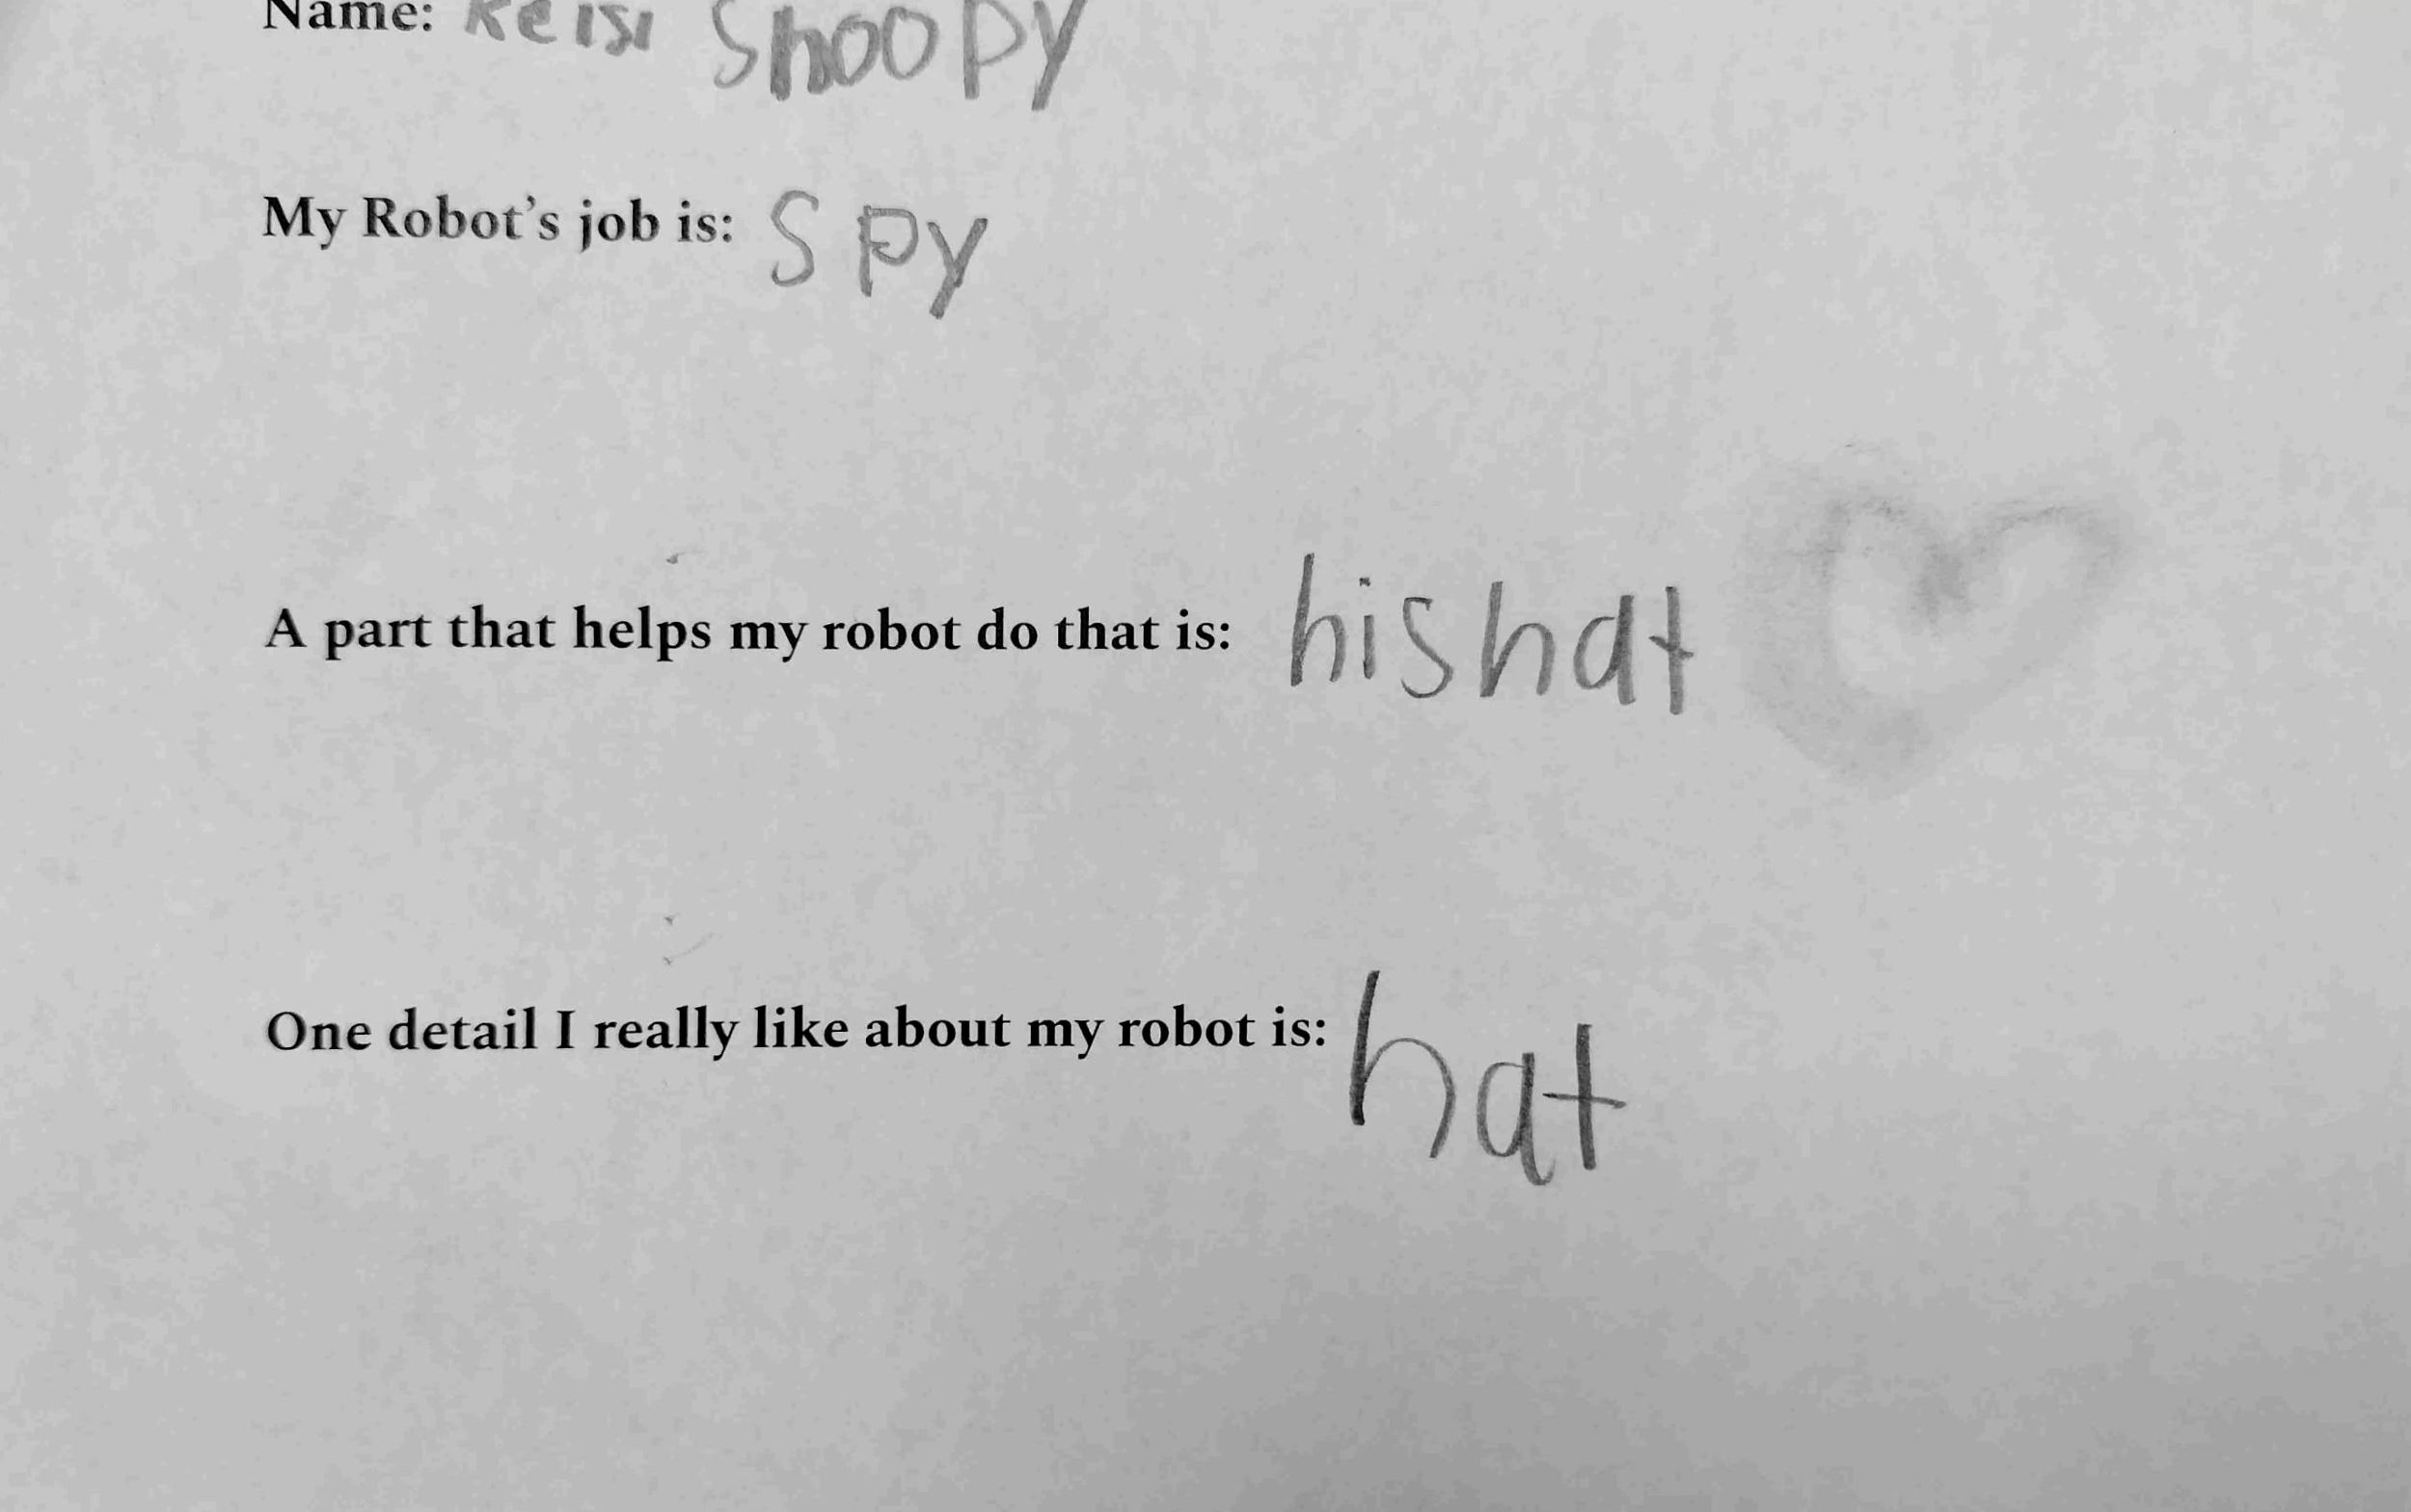 Name: Keisi Shoopy
My Robot's job is: Spy
A part that helps my robot do that is: his hat
One detail I really like about my robot is: hat